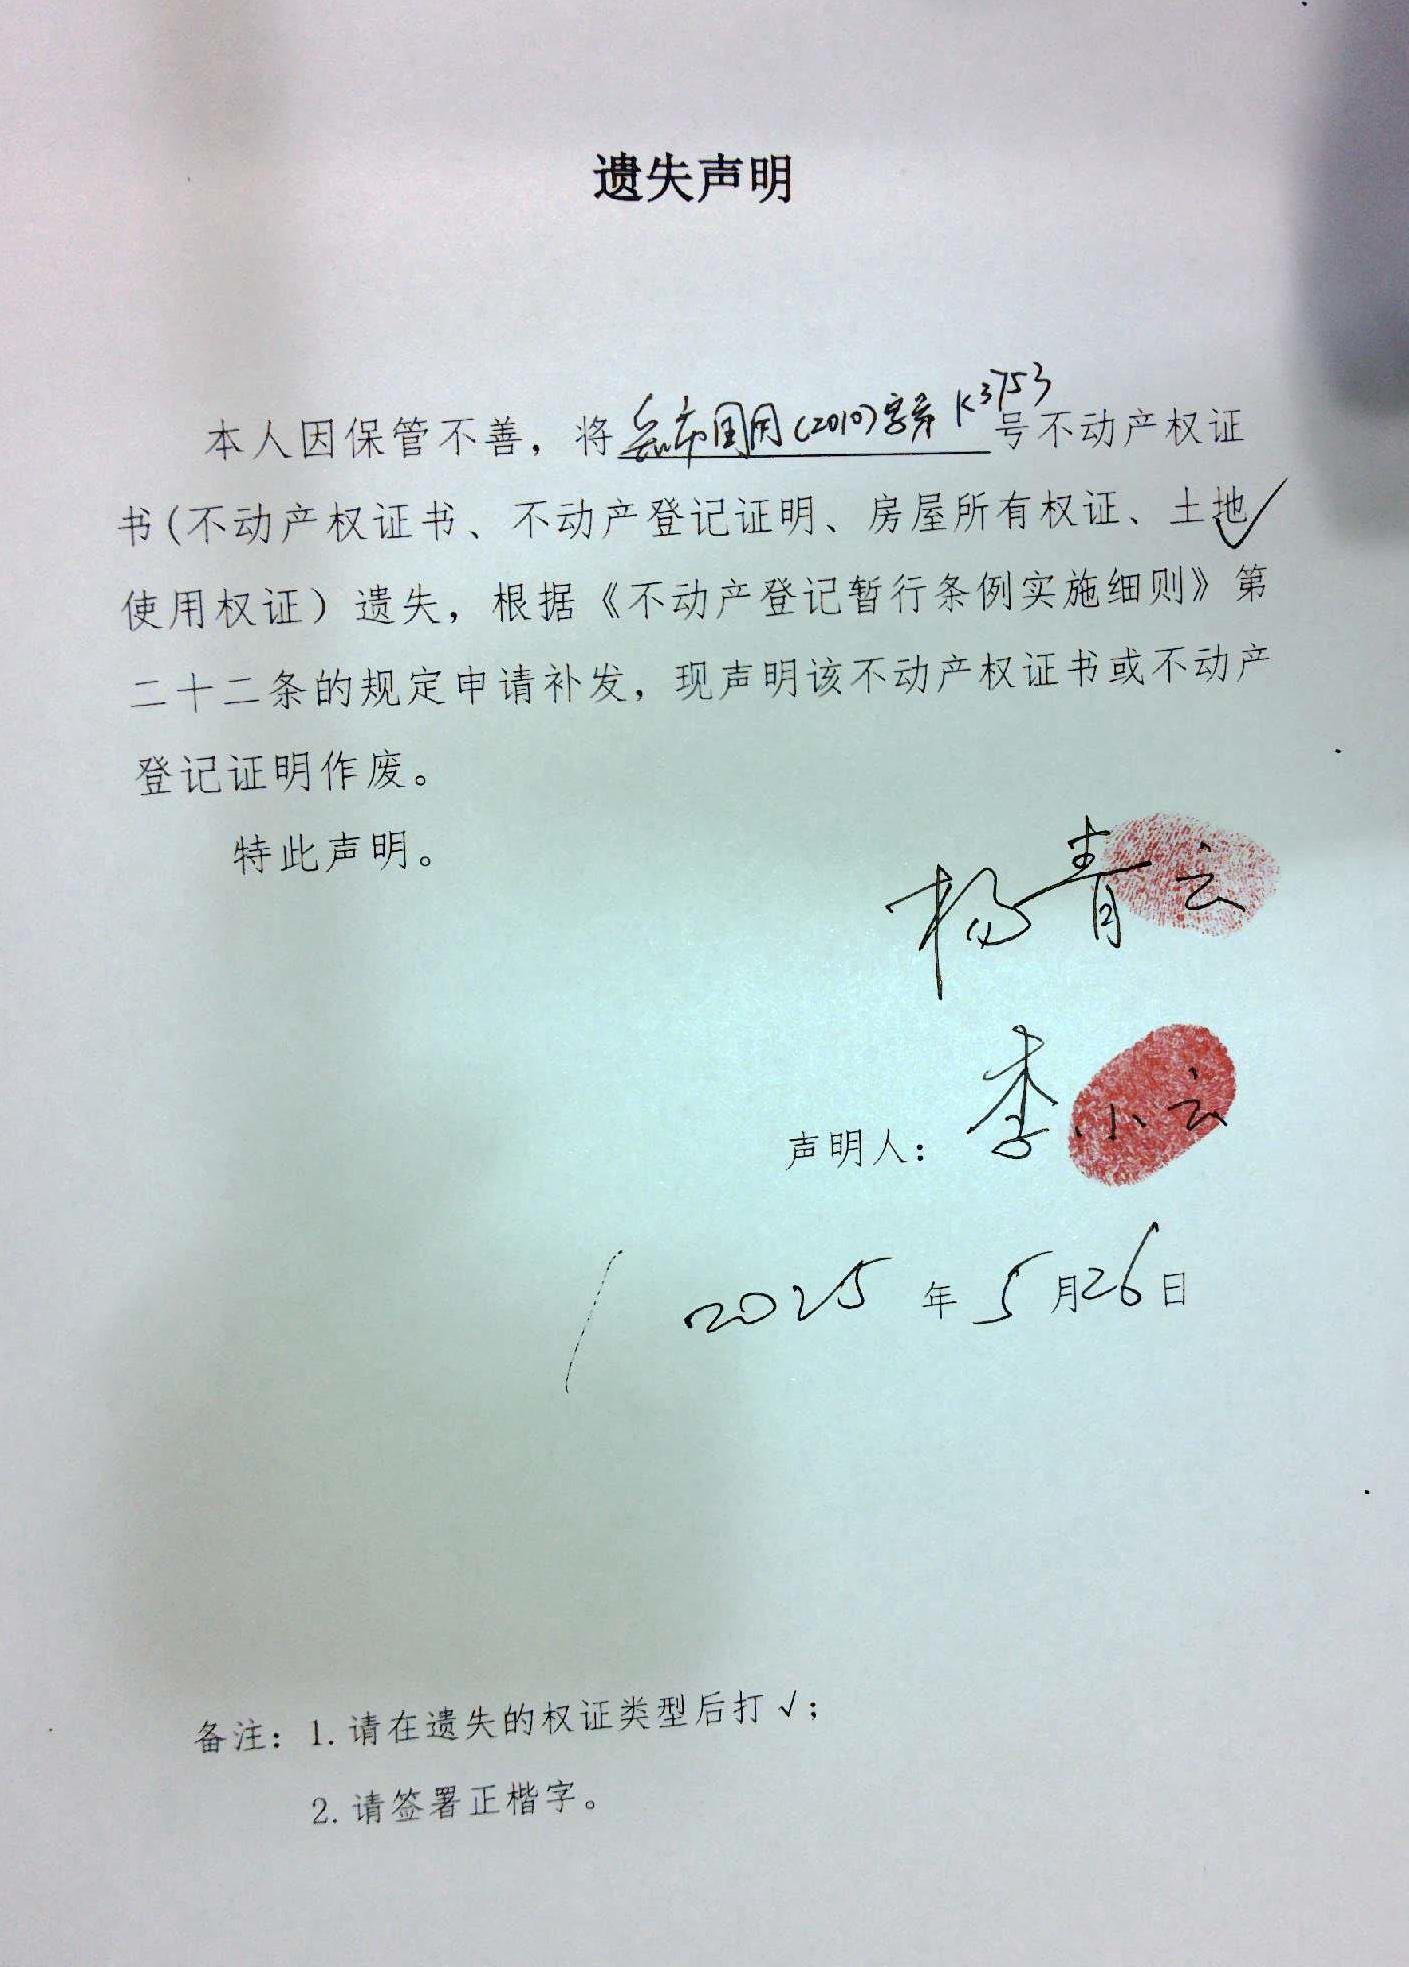 遗失声明
本人因保管不善，将岳市国用(2010)字第K3753号不动产权证
书(不动产权证书、不动产登记证明、房屋所有权证、土地✓
使用权证）遗失，根据《不动产登记暂行条例实施细则》第
二十二条的规定申请补发，现声明该不动产权证书或不动产
登记证明作废。
特此声明。
杨青云
声明人：李小云
2025年5月26日
备注：1.请在遗失的权证类型后打√；
2.请签署正楷字。